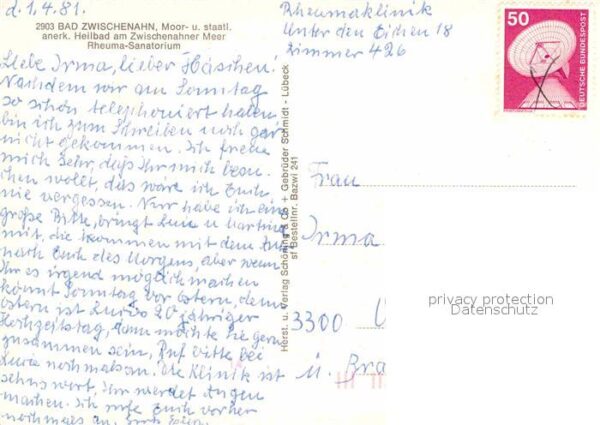 d. 1.4.81.
2903 BAD ZWISCHENAHN, Moor- u. staatl.
anerk. Heilbad am Zwischenahner Meer
Rheuma-Sanatorium
Liebe Irma, lieber Häschen!
Nachdem wir am Sonntag
so schön telephoniert haben,
bin ich zum Schreiben noch gar
nicht gekommen. Ich freue
mich sehr, daß Ihr mich besu-
chen wollt, das wäre ich Euch
nie vergessen. Nur habe ich eine
große Bitte, bringt u Hartmut
mit, die kommen mit dem Zug
nach Euch des Morgens, aber wenn
Ihr es irgend möglich machen
könnt Sonntag vor Ostern, denn
Ostern ist 20 jähriger
Hochzeitstag, dann möchte sie gern
zusammen sein, Ruf bitte bei
nochmals an. Die Klinik ist
sehnswert, Ihr werdet Augen
machen. Ich rufe Euch vorher
nochmals an.
Herst. u. Verlag Schöning & Co + Gebrüder Schmidt - Lübeck
sf Bestellnr. Bazwi 241
Rheumaklinik
Unter den Eichen 18
Zimmer 426
50
DEUTSCHE BUNDESPOST
Frau
Irma
3300
privacy protection
Datenschutz